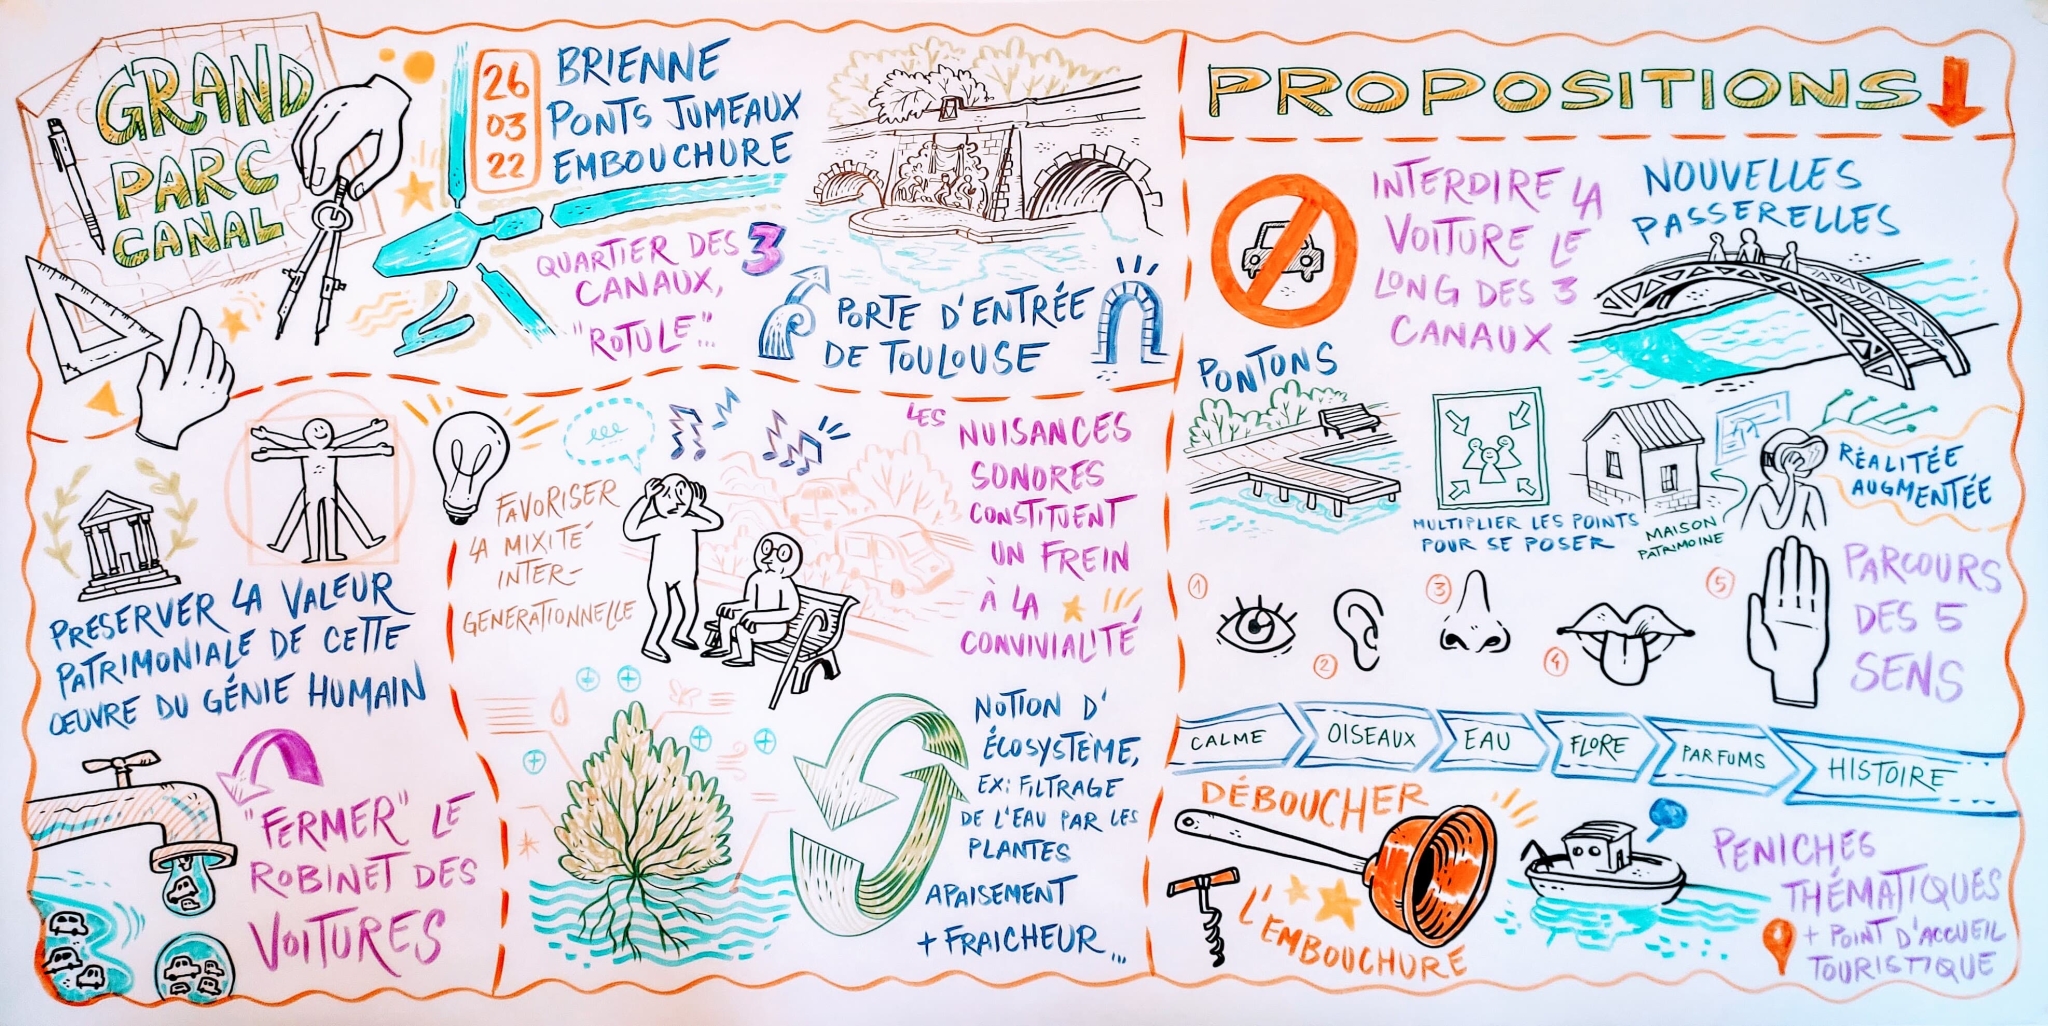 GRAND
PARC
CANAL
26
03
22
BRIENNE
PONTS JUMEAUX
EMBOUCHURE
QUARTIER DES 3
CANAUX,
"ROTULE"...
PORTE D'ENTRÉE
DE TOULOUSE
PRESERVER LA VALEUR
PATRIMONIALE DE CETTE
ŒUVRE DU GÉNIE HUMAIN
"FERMER" LE
ROBINET DES
VOITURES
FAVORISER
LA MIXITÉ
INTER-
GENERATIONNELLE
LES
NUISANCES
SONORES
CONSTITUENT
UN FREIN
À LA
CONVIVIALITÉ
NOTION D'
ÉCOSYSTÈME,
EX: FILTRAGE
DE L'EAU PAR LES
PLANTES
APAISEMENT
+ FRAICHEUR...
PROPOSITIONS
INTERDIRE LA
VOITURE LE
LONG DES 3
CANAUX
NOUVELLES
PASSERELLES
PONTONS
MULTIPLIER LES POINTS
POUR SE POSER
MAISON
PATRIMOINE
RÉALITÉE
AUGMENTÉE
1
2
3
4
5
PARCOURS
DES 5
SENS
CALME
OISEAUX
EAU
FLORE
PARFUMS
HISTOIRE
DÉBOUCHER
L'EMBOUCHURE
PENICHES
THÉMATIQUES
+ POINT D'ACCUEIL
TOURISTIQUE